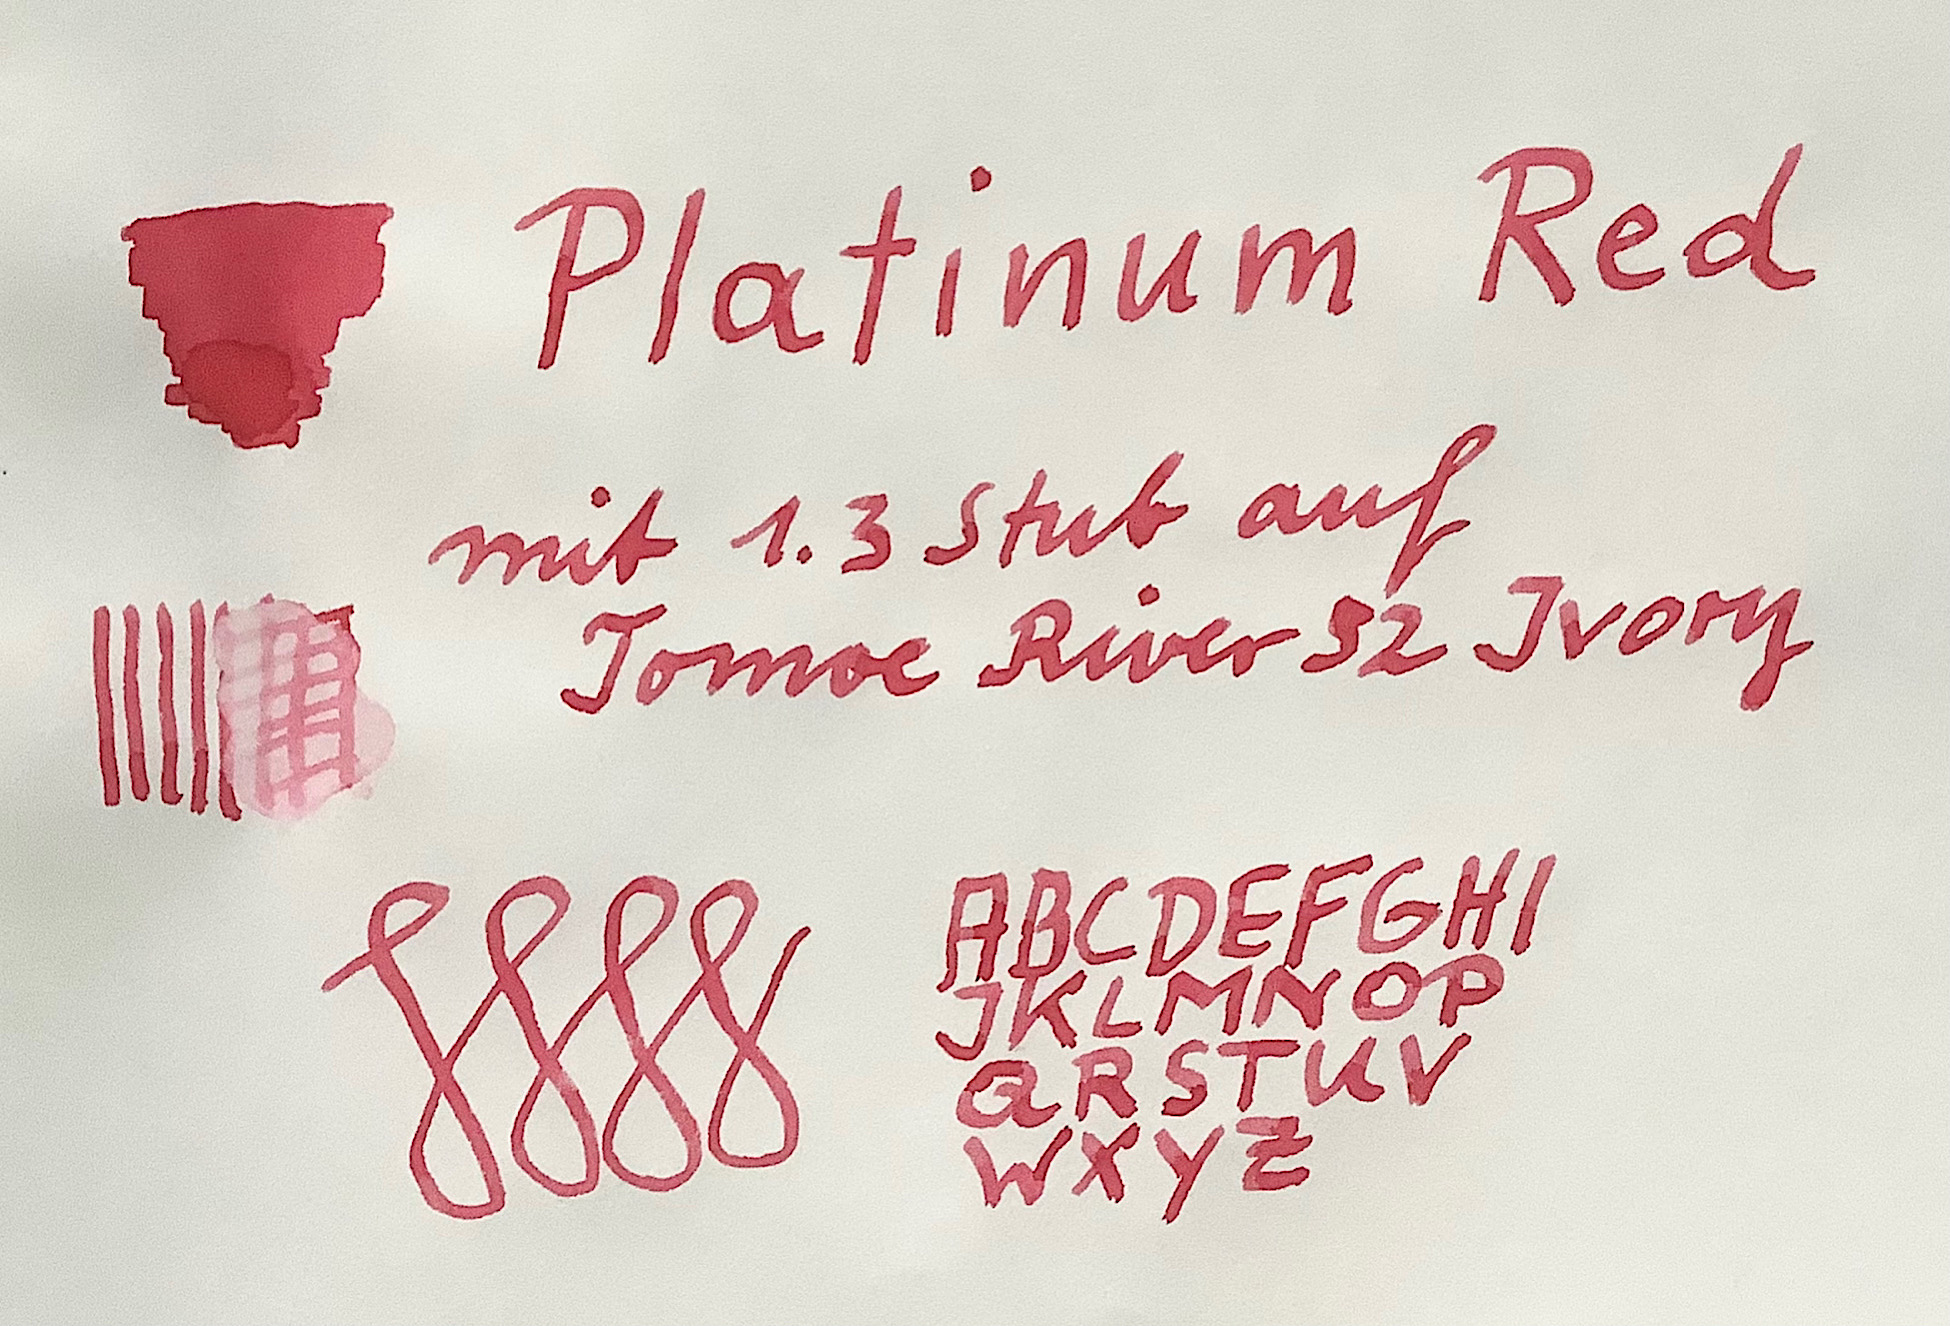 Platinum Red
mit 1.3 Stub auf
Tomoe River 52 Ivory
ABCDEFGHI
JKLMNOP
QRSTUV
WXYZ